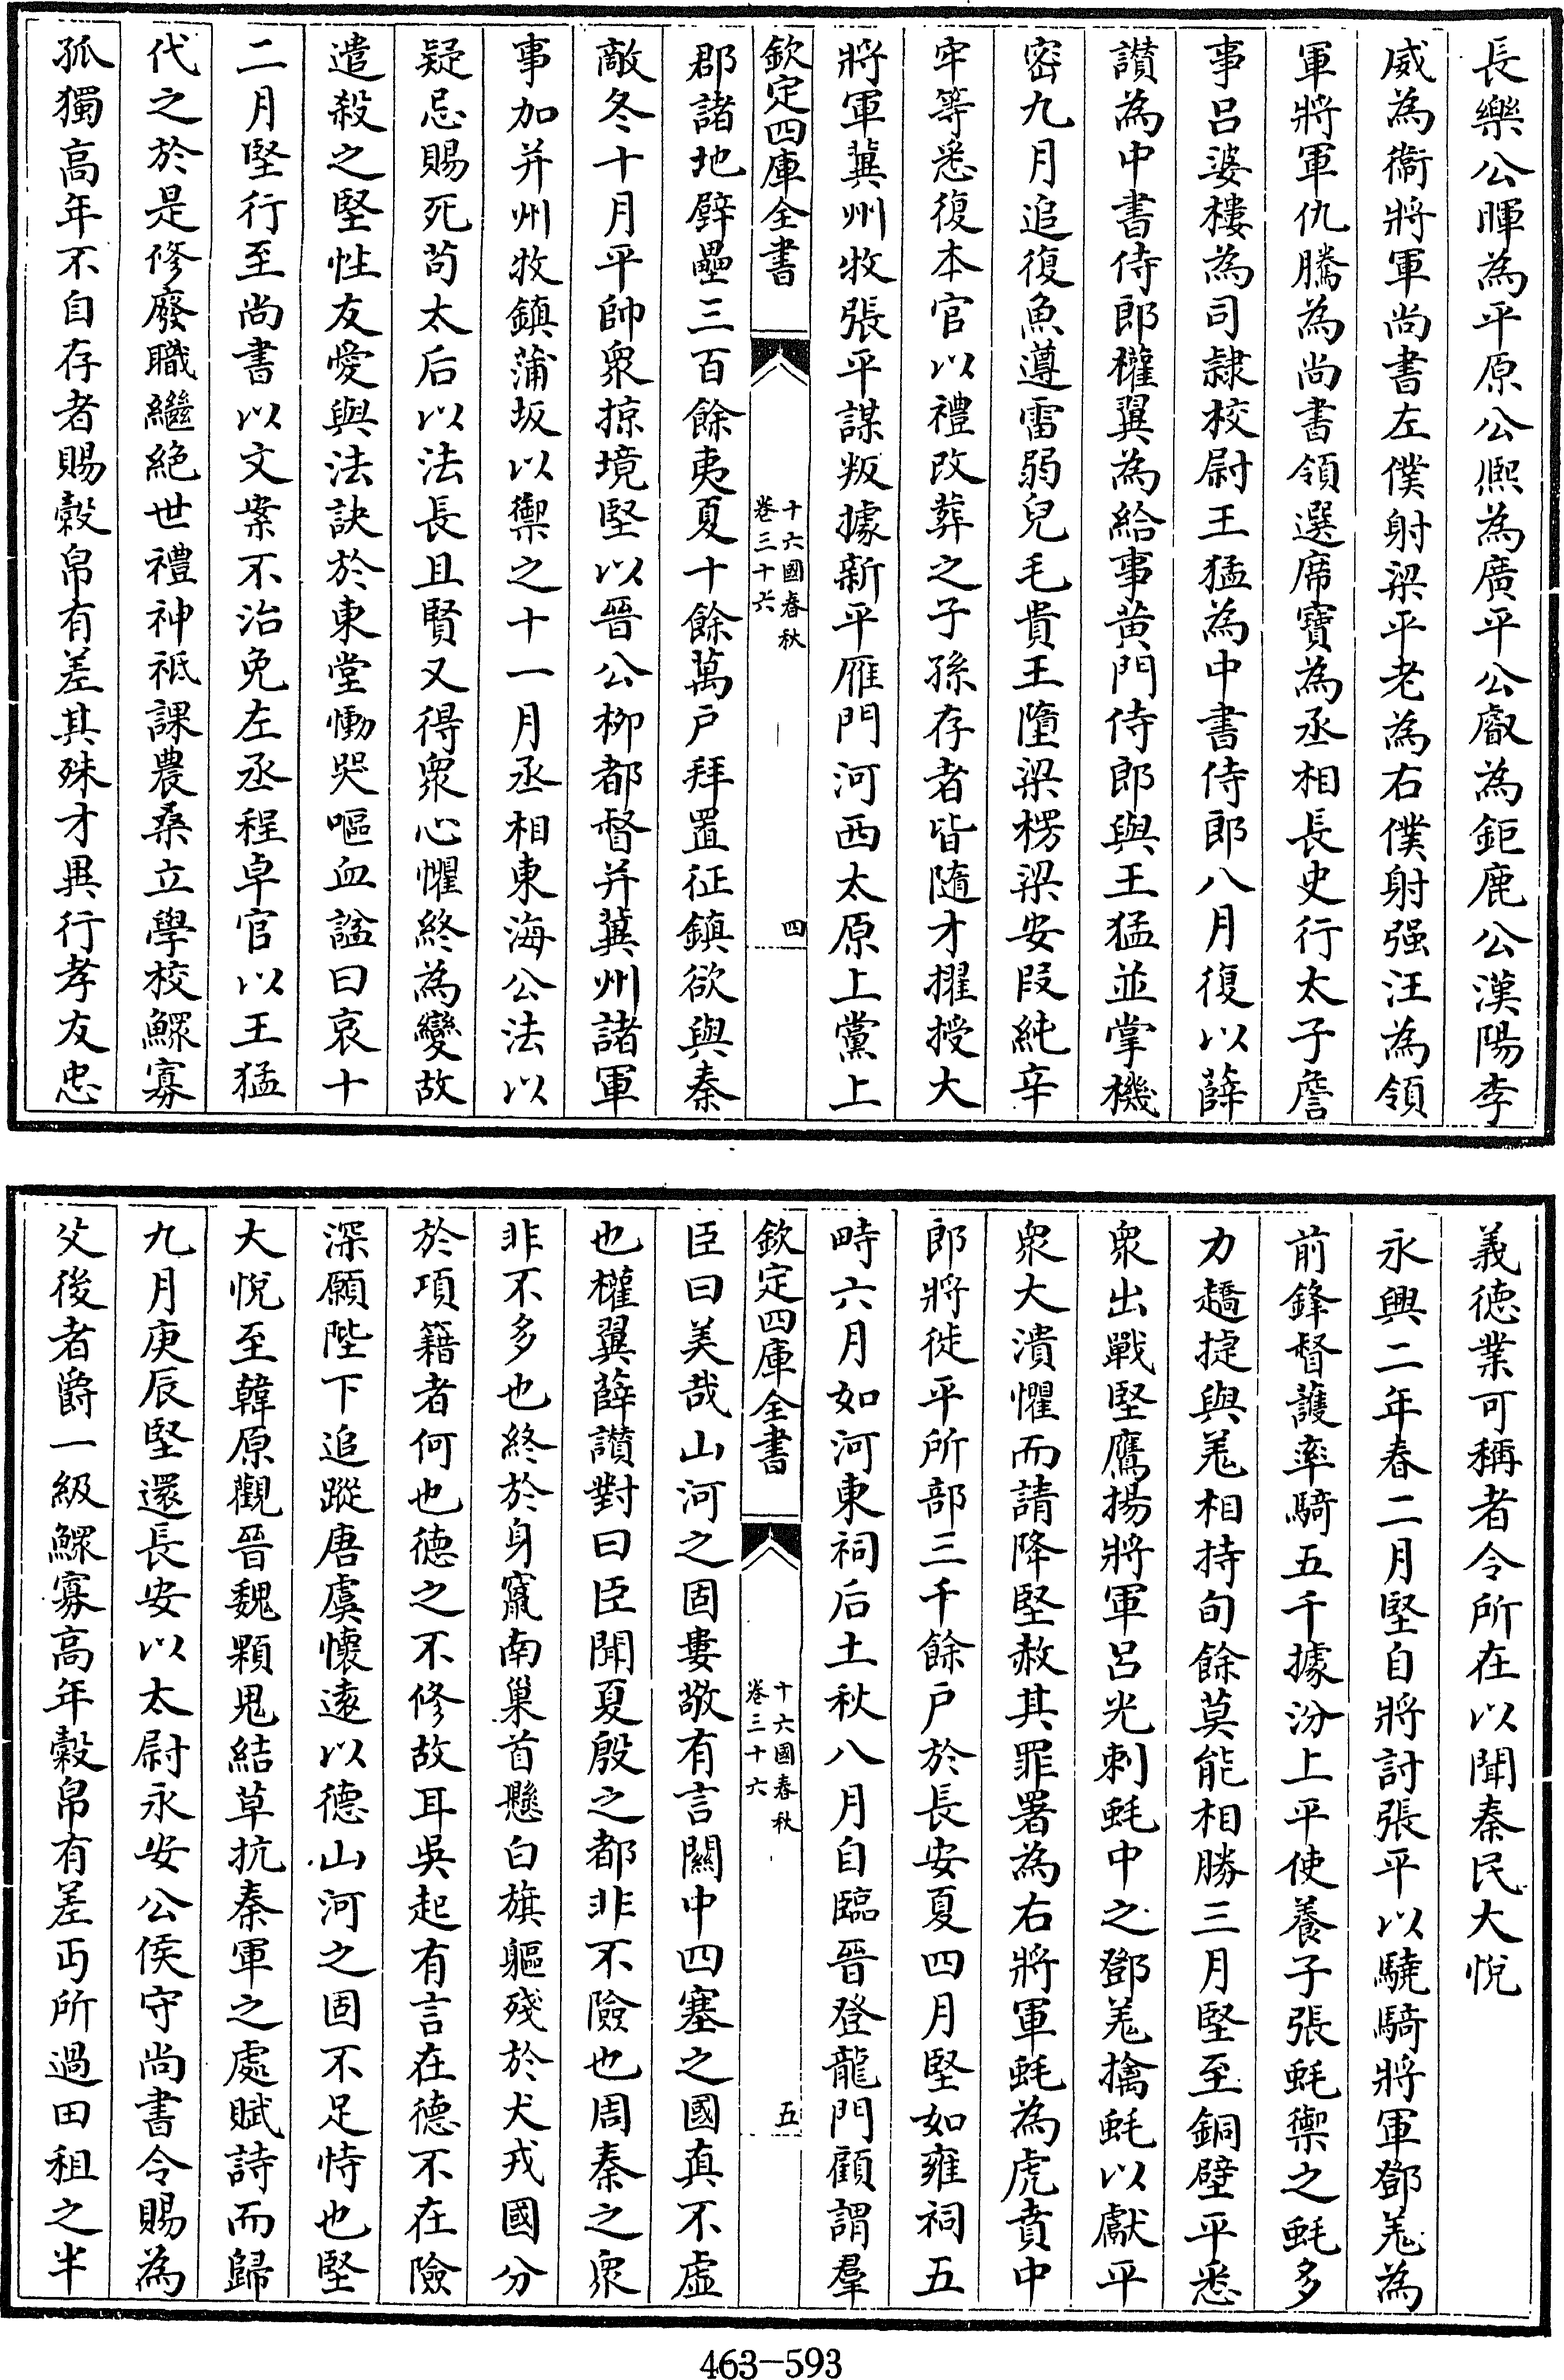 長樂公暉為平原公熙為廣平公叡為鉅鹿公漢陽李
威為衞將軍尚書左僕射梁平老為右僕射强汪為領
軍將軍仇騰為尚書領選席寶為丞相長史行太子詹
事呂婆樓為司隷校尉王猛為中書侍郎八月復以薛
讃為中書侍郎權翼為給事黄門侍郎與王猛並掌機
密九月追復魚遵雷弱兒毛貴王墮梁楞梁安段純辛
牢等悉復本官以禮改葬之子孫存者皆隨才擢授大
將軍冀州牧張平謀叛據新平雁門河西太原上黨上
欽定四庫全書
十六國春秋
卷三十六
四
郡諸地壁壘三百餘夷夏十餘萬户拜置征鎮欲與秦
敵冬十月平帥衆掠境堅以晉公柳都督并冀州諸軍
事加并州牧鎮蒲坂以禦之十一月丞相東海公法以
疑忌賜死茍太后以法長且賢又得衆心懼終為變故
遣殺之堅性友愛與法訣於東堂慟哭嘔血諡曰哀十
二月堅行至尚書以文案不治免左丞程卓官以王猛
代之於是修廢職繼絶世禮神祗課農桑立學校鰥寡
孤獨高年不自存者賜穀帛有差其殊才異行孝友忠
義徳業可稱者令所在以聞秦民大悅
永興二年春二月堅自將討張平以驍騎將軍鄧羌為
前鋒督護率騎五千據汾上平使養子張蚝禦之蚝多
力趫捷與羌相持旬餘莫能相勝三月堅至銅壁平悉
衆出戰堅鷹揚將軍呂光刺蚝中之鄧羌擒蚝以獻平
衆大潰懼而請降堅赦其罪署為右將軍蚝為虎賁中
郎將徙平所部三千餘户於長安夏四月堅如雍祠五
畤六月如河東祠后土秋八月自臨晉登龍門顧謂羣
欽定四庫全書
十六國春秋
卷三十六
五
臣曰美哉山河之固婁敬有言關中四塞之國真不虛
也權翼薛讃對曰臣聞夏殷之都非不險也周秦之衆
非不多也終於身竄南巢首懸白旗軀殘於犬戎國分
於項籍者何也徳之不修故耳吳起有言在徳不在險
深願陛下追蹤唐虞懷遠以徳山河之固不足恃也堅
大悅至韓原觀晉魏顆鬼結草抗秦軍之處賦詩而歸
九月庚辰堅還長安以太尉永安公侯守尚書令賜為
父後者爵一級鰥寡高年穀帛有差丐所過田租之半
463-593